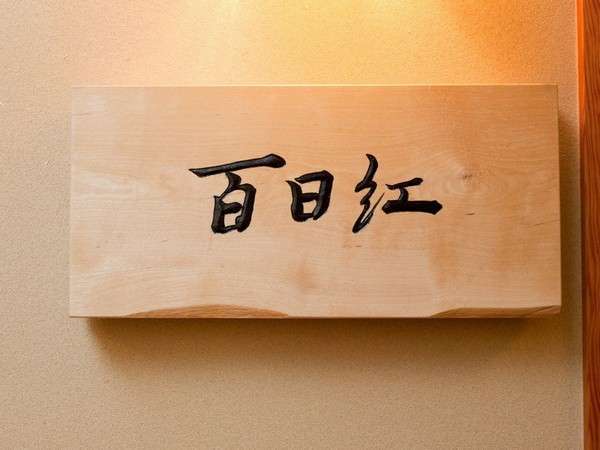 百日紅